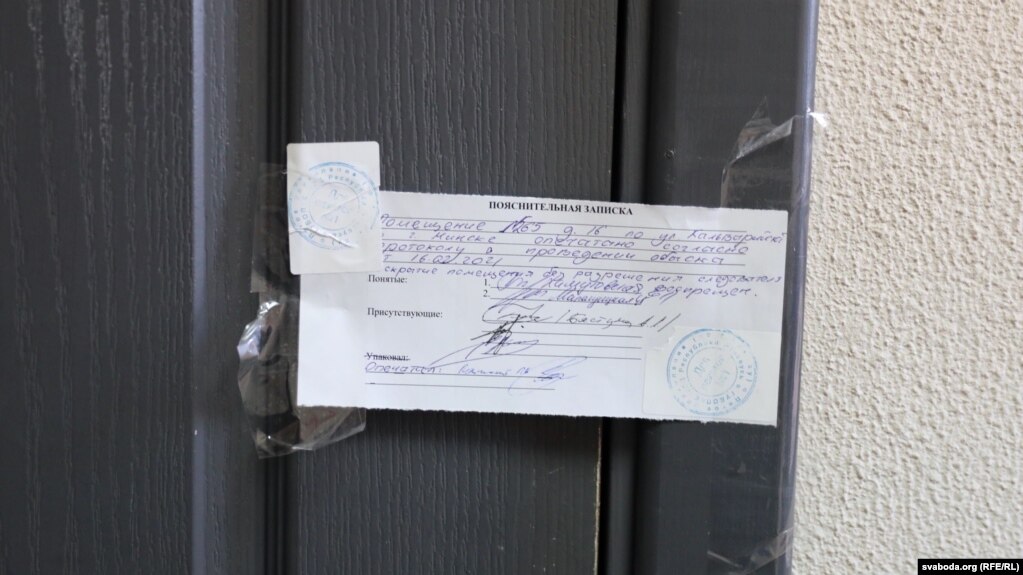 ПОЯСНИТЕЛЬНАЯ ЗАПИСКА
Помещение №65 д. 16 по ул Кальварийской
в г. Минске опечатано согласно
протоколу о проведении обыска
от 16.02.2021
Вскрытие помещения без разрешения следователя запрещен.
Понятые: 1.
2.
Присутствующие: /Бастунец А.Л/
Упаковал:
Опечатал:
svaboda.org (RFE/RL)